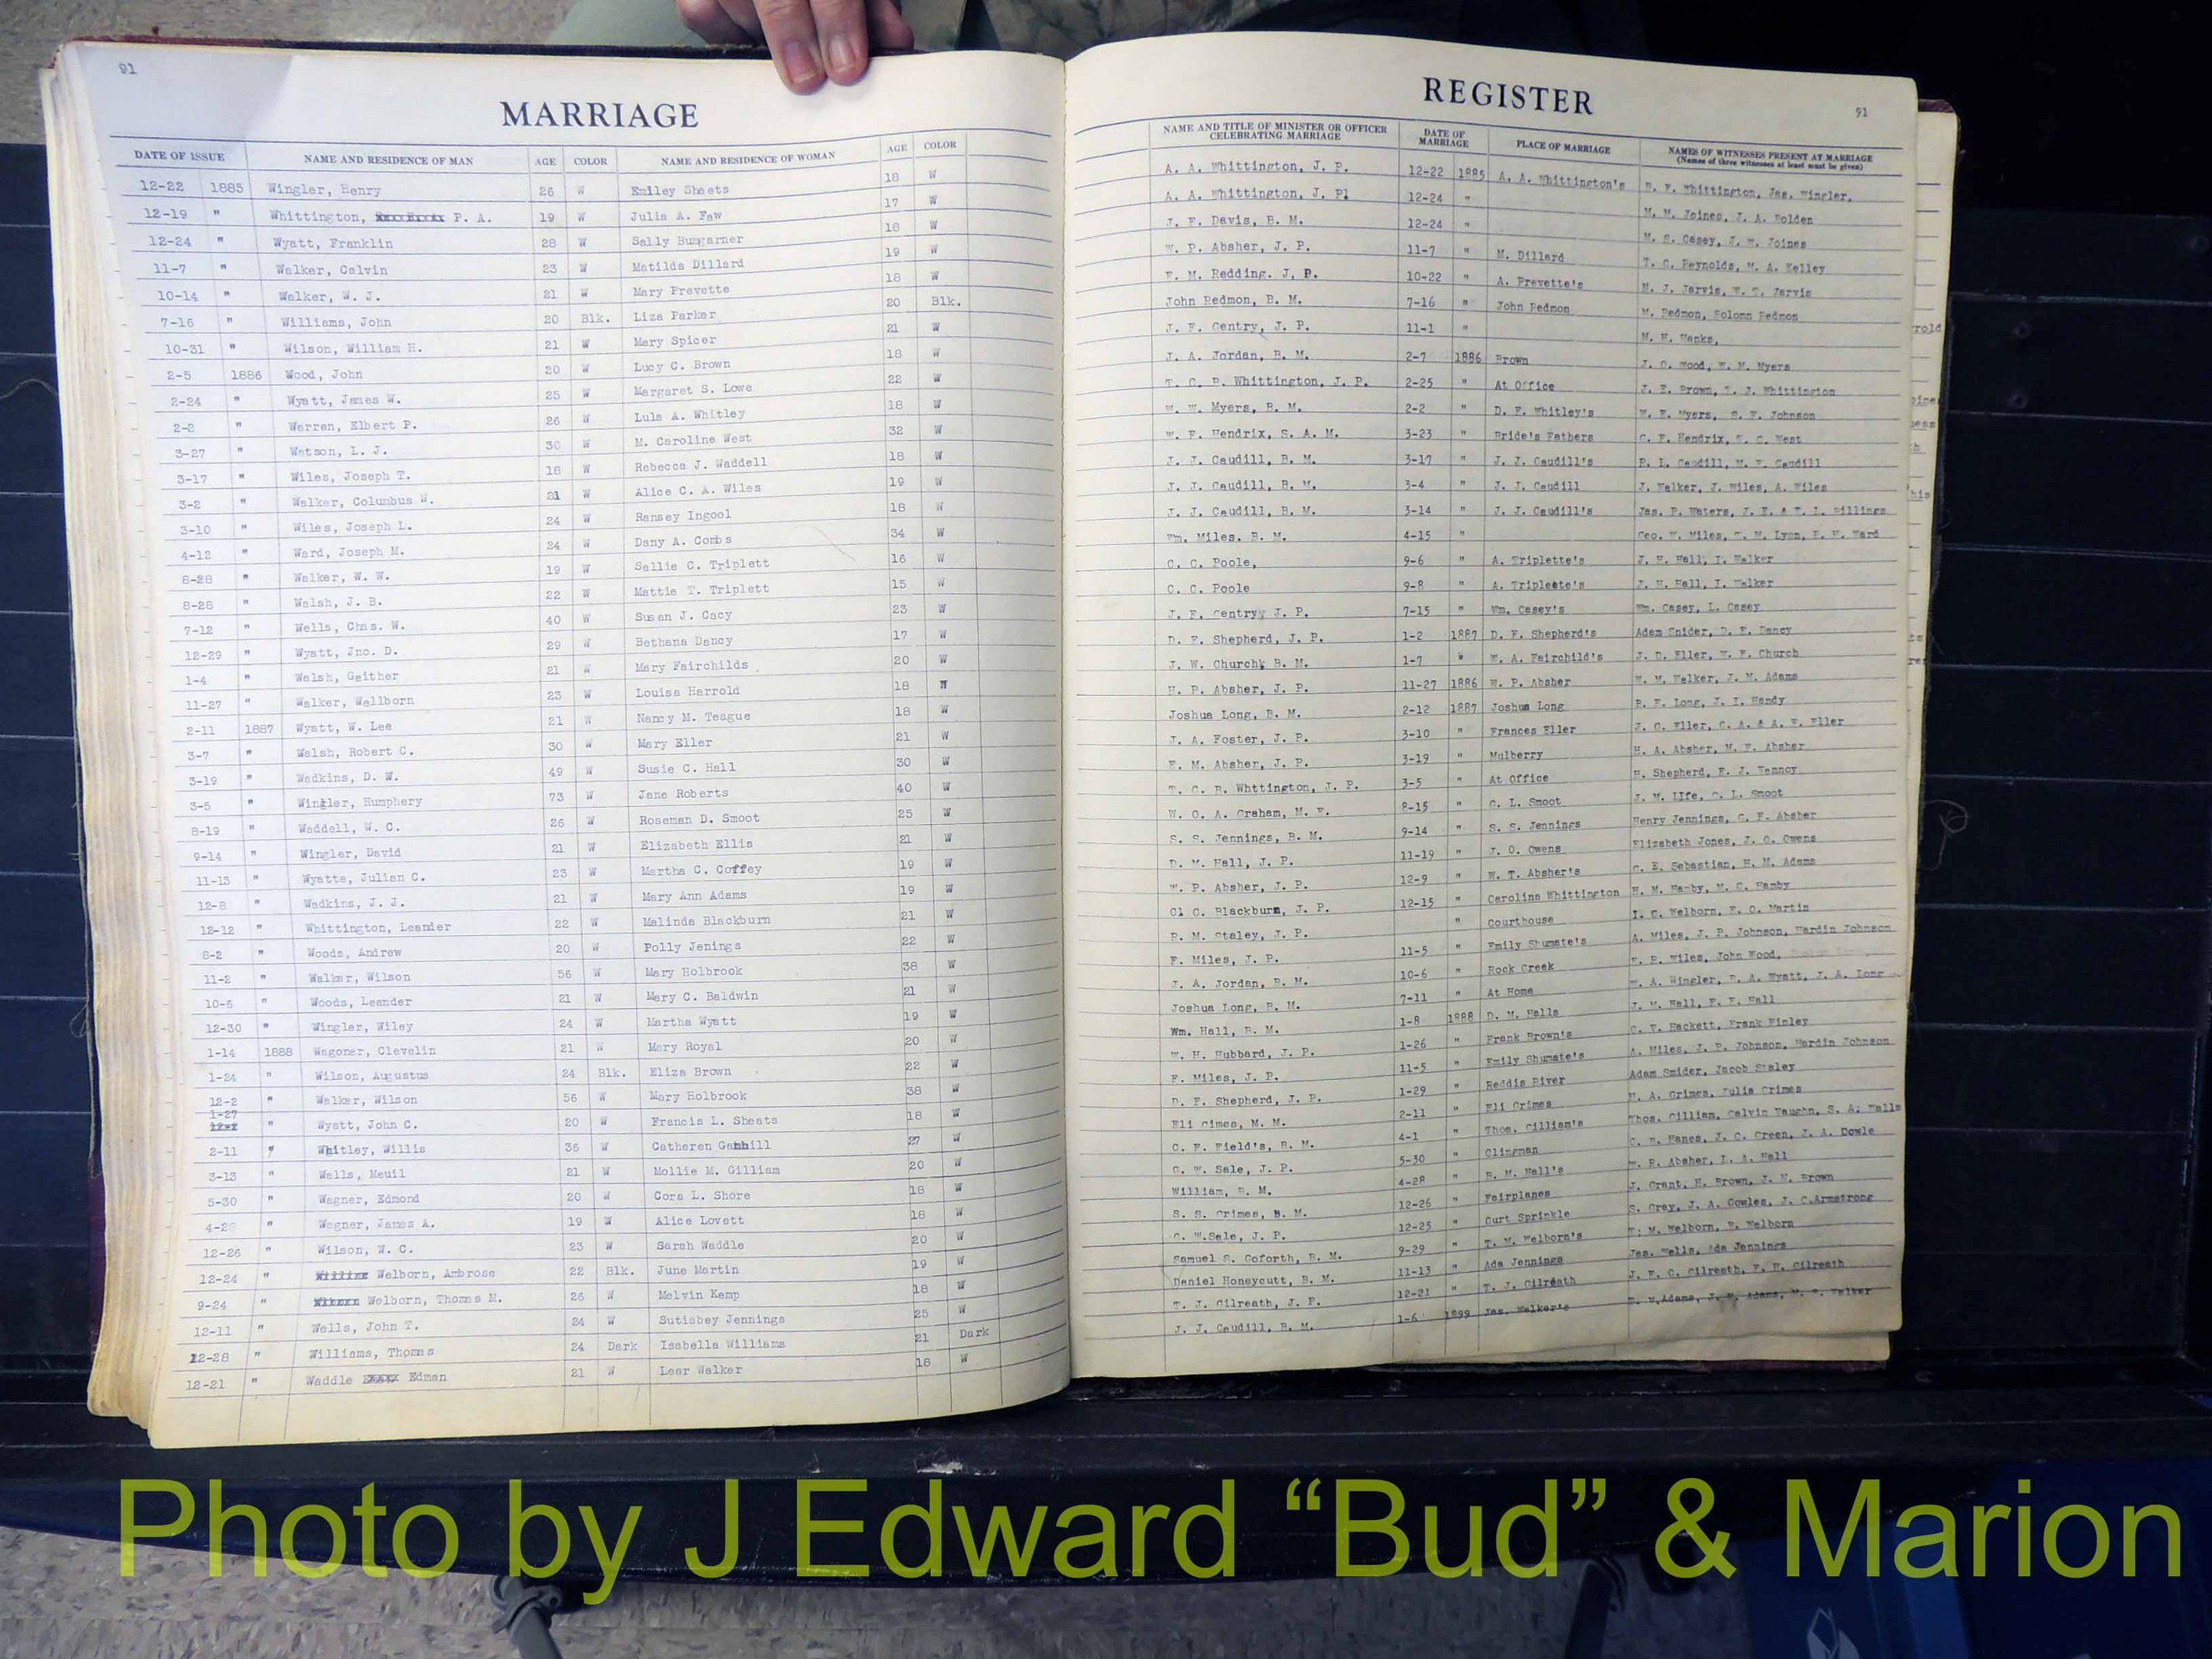 91
MARRIAGE
DATE OF ISSUE NAME AND RESIDENCE OF MAN AGE COLOR NAME AND RESIDENCE OF WOMAN AGE COLOR
12-22 1885 Wingler, Henry 26 W Emiley Sheets 18 W
12-19 " Whittington, P. A. 19 W Julia A. Faw 17 W
12-24 " Wyatt, Franklin 28 W Sally Bumgarner 18 W
11-7 " Walker, Calvin 23 W Matilda Dillard 19 W
10-14 " Walker, W. J. 21 W Mary Prevette 18 W
7-16 " Williams, John 20 Blk. Liza Parker 20 Blk.
10-31 " Wilson, William H. 21 W Mary Spicer 21 W
2-5 1886 Wood, John 20 W Lucy C. Brown 18 W
2-24 " Wyatt, James W. 25 W Margaret S. Lowe 22 W
2-2 " Warren, Elbert P. 26 W Lula A. Whitley 18 W
3-27 " Watson, L. J. 30 W M. Caroline West 32 W
3-17 " Wiles, Joseph T. 18 W Rebecca J. Waddell 18 W
3-2 " Walker, Columbus W. 21 W Alice C. A. Wiles 19 W
3-10 " Wiles, Joseph L. 24 W Ransey Ingool 18 W
4-12 " Ward, Joseph M. 24 W Dany A. Combs 34 W
8-28 " Walker, W. W. 19 W Sallie C. Triplett 16 W
8-28 " Walsh, J. B. 22 W Mattie T. Triplett 15 W
7-12 " Wells, Chas. W. 40 W Susan J. Cacy 23 W
12-29 " Wyatt, Jno. D. 29 W Bethana Dancy 17 W
1-4 " Walsh, Gaither 21 W Mary Fairchilds 20 W
11-27 " Walker, Wellborn 23 W Louisa Harrold 18 W
2-11 1887 Wyatt, W. Lee 21 W Nancy M. Teague 18 W
3-7 " Walsh, Robert C. 30 W Mary Eller 21 W
3-19 " Wadkins, D. W. 49 W Susie C. Hall 30 W
3-5 " Wingler, Humphery 73 W Jane Roberts 40 W
8-19 " Waddell, W. C. 26 W Roseman D. Smoot 25 W
9-14 " Wingler, David 21 W Elizabeth Ellis 21 W
11-13 " Wyatte, Julian C. 23 W Martha C. Coffey 19 W
12-8 " Wadkins, J. J. 21 W Mary Ann Adams 19 W
12-12 " Whittington, Leander 22 W Malinda Blackburn 21 W
8-2 " Woods, Andrew 20 W Polly Jenings 22 W
11-2 " Walker, Wilson 56 W Mary Holbrook 38 W
10-5 " Woods, Leander 21 W Mary C. Baldwin 21 W
12-30 " Wingler, Wiley 24 W Martha Wyatt 19 W
1-14 1888 Wagoner, Clevelin 21 W Mary Royal 20 W
1-24 " Wilson, Augustus 24 Blk. Eliza Brown 22 W
12-2 " Walker, Wilson 56 W Mary Holbrook 38 W
1-27 " Wyatt, John C. 20 W Francis L. Sheats 18 W
2-11 " Whitley, Willis 36 W Catheren 27 W
3-13 " Wells, Meuil 21 W Mollie M. Gilliam 20 W
5-30 " Wagner, Edmond 20 W Cora L. Shore 18 W
4-28 " Wagner, James A. 19 W Alice Lovett 18 W
12-26 " Wilson, W. C. 23 W Sarah Waddle 20 W
12-24 " Welborn, Ambrose 22 Blk. June Martin 19 W
9-24 " Welborn, Thomas M. 26 W Melvin Kemp 18 W
12-11 " Wells, John T. 24 W Sutisbey Jennings 25 W
12-28 " Williams, Thomas 24 Dark Isabella Williams 21 Dark
12-21 " Waddle Edman 21 W Lear Walker 18 W
REGISTER
91
NAME AND TITLE OF MINISTER OR OFFICER CELEBRATING MARRIAGE DATE OF MARRIAGE PLACE OF MARRIAGE NAMES OF WITNESSES PRESENT AT MARRIAGE
(Names of three witnesses at least must be given)
A. A. Whittington, J. P. 12-22 1885 A. A. Whittington's R. F. Whittington, Jas. Wingler,
A. A. Whittington, J. Pl 12-24 " M. M. Joines, J. A. Holden
J. F. Davis, B. M. 12-24 " M. S. Casey, J. W. Joines
W. P. Absher, J. P. 11-7 " M. Dillard T. C. Reynolds, W. A. Kelley
F. M. Redding. J, P. 10-22 " A. Prevette's N. J. Jarvis, W. T. Jarvis
John Redmon, B. M. 7-16 " John Redmon M. Redmon, Solomn Redmon
J. F. Gentry, J. P. 11-1 " M. H. Hanks,
J. A. Jordan, B. M. 2-7 1886 Brown J. C. Wood, W. M. Myers
T. C. R. Whittington, J. P. 2-25 " At Office J. E. Brown, T. J. Whittington
W. W. Myers, B. M. 2-2 " D. F. Whitley's W. E. Myers, S. F. Johnson
W. F. Hendrix, S. A. M. 3-23 " Bride's Fathers C. F. Hendrix, T. C. West
J. J. Caudill, B. M. 3-17 " J. J. Caudill's R. L. Caudill, M. F. Caudill
J. J. Caudill, B. M. 3-4 " J. J. Caudill J. Walker, J. Wiles, A. Wiles
J. J. Caudill, B. M. 3-14 " J. J. Caudill's Jas. P. Waters, J. E. & T. L. Billings
Wm. Miles. B. M. 4-15 " Geo. W. Miles, T. M. Lyon, E. H. Ward
C. C. Poole, 9-6 " A. Triplette's J. H. Hall, I. Walker
C. C. Poole 9-8 " A. Tripleete's J. H. Hall, I. Walker
J. F. Gentry, J. P. 7-15 " Wm. Casey's Wm. Casey, L. Casey
D. F. Shepherd, J. P. 1-2 1887 D. F. Shepherd's Adam Snider, D. E. Dancy
J. W. Church, B. M. 1-7 " W. A. Fairchild's J. D. Eller, W. F. Church
H. P. Absher, J. P. 11-27 1886 W. P. Absher W. M. Walker, J. M. Adams
Joshua Long, B. M. 2-12 1887 Joshua Long R. F. Long, J. I. Handy
J. A. Foster, J. P. 3-10 " Frances Eller J. C. Eller, C. A. & A. F. Eller
E. M. Absher, J. P. 3-19 " Mulberry H. A. Absher, M. F. Absher
T. C. R. Whttington, J. P. 3-5 " At Office H. Shepherd, E. J. Vannoy
W. O. A. Graham, M. E. 8-15 " C. L. Smoot J. M. LIfe, C. L. Smoot
S. S. Jennings, B. M. 9-14 " S. S. Jennings Henry Jennings, C. F. Absher
D. M. Hall, J. P. 11-19 " J. O. Owens Elizabeth Jones, J. O. Owens
W. P. Absher, J. P. 12-9 " W. T. Absher's C. E. Sebastian, H. M. Adams
Cl C. Blackburn, J. P. 12-15 " Carolina Whittington H. M. Hamby, M. C. Hamby
R. M. Staley, J. P. " Courthouse I. C. Welborn, F. O. Martin
F. Miles, J. P. 11-5 " Emily Shumate's A. Miles, J. P. Johnson, Hardin Johnson
J. A. Jordan, B. M. 10-6 " Rock Creek Wiles, John Wood,
Joshua Long, B. M. 7-11 " At Home A. Wingler, R. A. Wyatt, J. A. Long
Wm. Hall, B. M. 1-8 1988 D. M. Halls J. M. Hall, F. F. Hall
W. H. Hubbard, J. P. 1-26 " Frank Brown's C. F. Hackett, Frank Finley
F. Miles, J. P. 11-5 " Emily Shumate's A. Miles, J. P. Johnson, Hardin Johnson
D. F. Shepherd, J. P. 1-29 " Reddis River Adam Snider, Jacob Staley
Eli Gimes, M. M. 2-11 " Eli Grimes H. A. Grimes, Julia Grimes
C. F. Field's, B. M. 4-1 " Thos. Gilliam's Thos. Gilliam, Calvin Vaughn, S. A. Walls
C. W. Sale, J. P. 5-30 " Clingman C. W. Hanes, J. C. Green, J. A. Dowle
William, B. M. 4-28 " R. M. Hall's W. R. Absher, L. A. Hall
S. S. Grimes, B. M. 12-26 " Fairplanes J. Grant, H. Brown, J. M. Brown
C. W.Sale, J. P. 12-25 " Curt Sprinkle S. Gray, J. A. Cowles, J. C.Armstrong
Samuel S. Goforth, B. M. 9-29 " T. M. Welborn's T. M. Welborn, E. Welborn
Daniel Honeycutt, B. M. 11-13 " Ada Jennings Jas. Wells, Ada Jennings
T. J. Gilreath, J. P. 12-21 " T. J. Gilreath J. F. C. Gilreath, F. H. Gilreath
J. J. Caudill, B. M. 1-6 1899 Jas. Walker's Adams, J. M. Adams, Walker
Photo by J Edward “Bud” & Marion